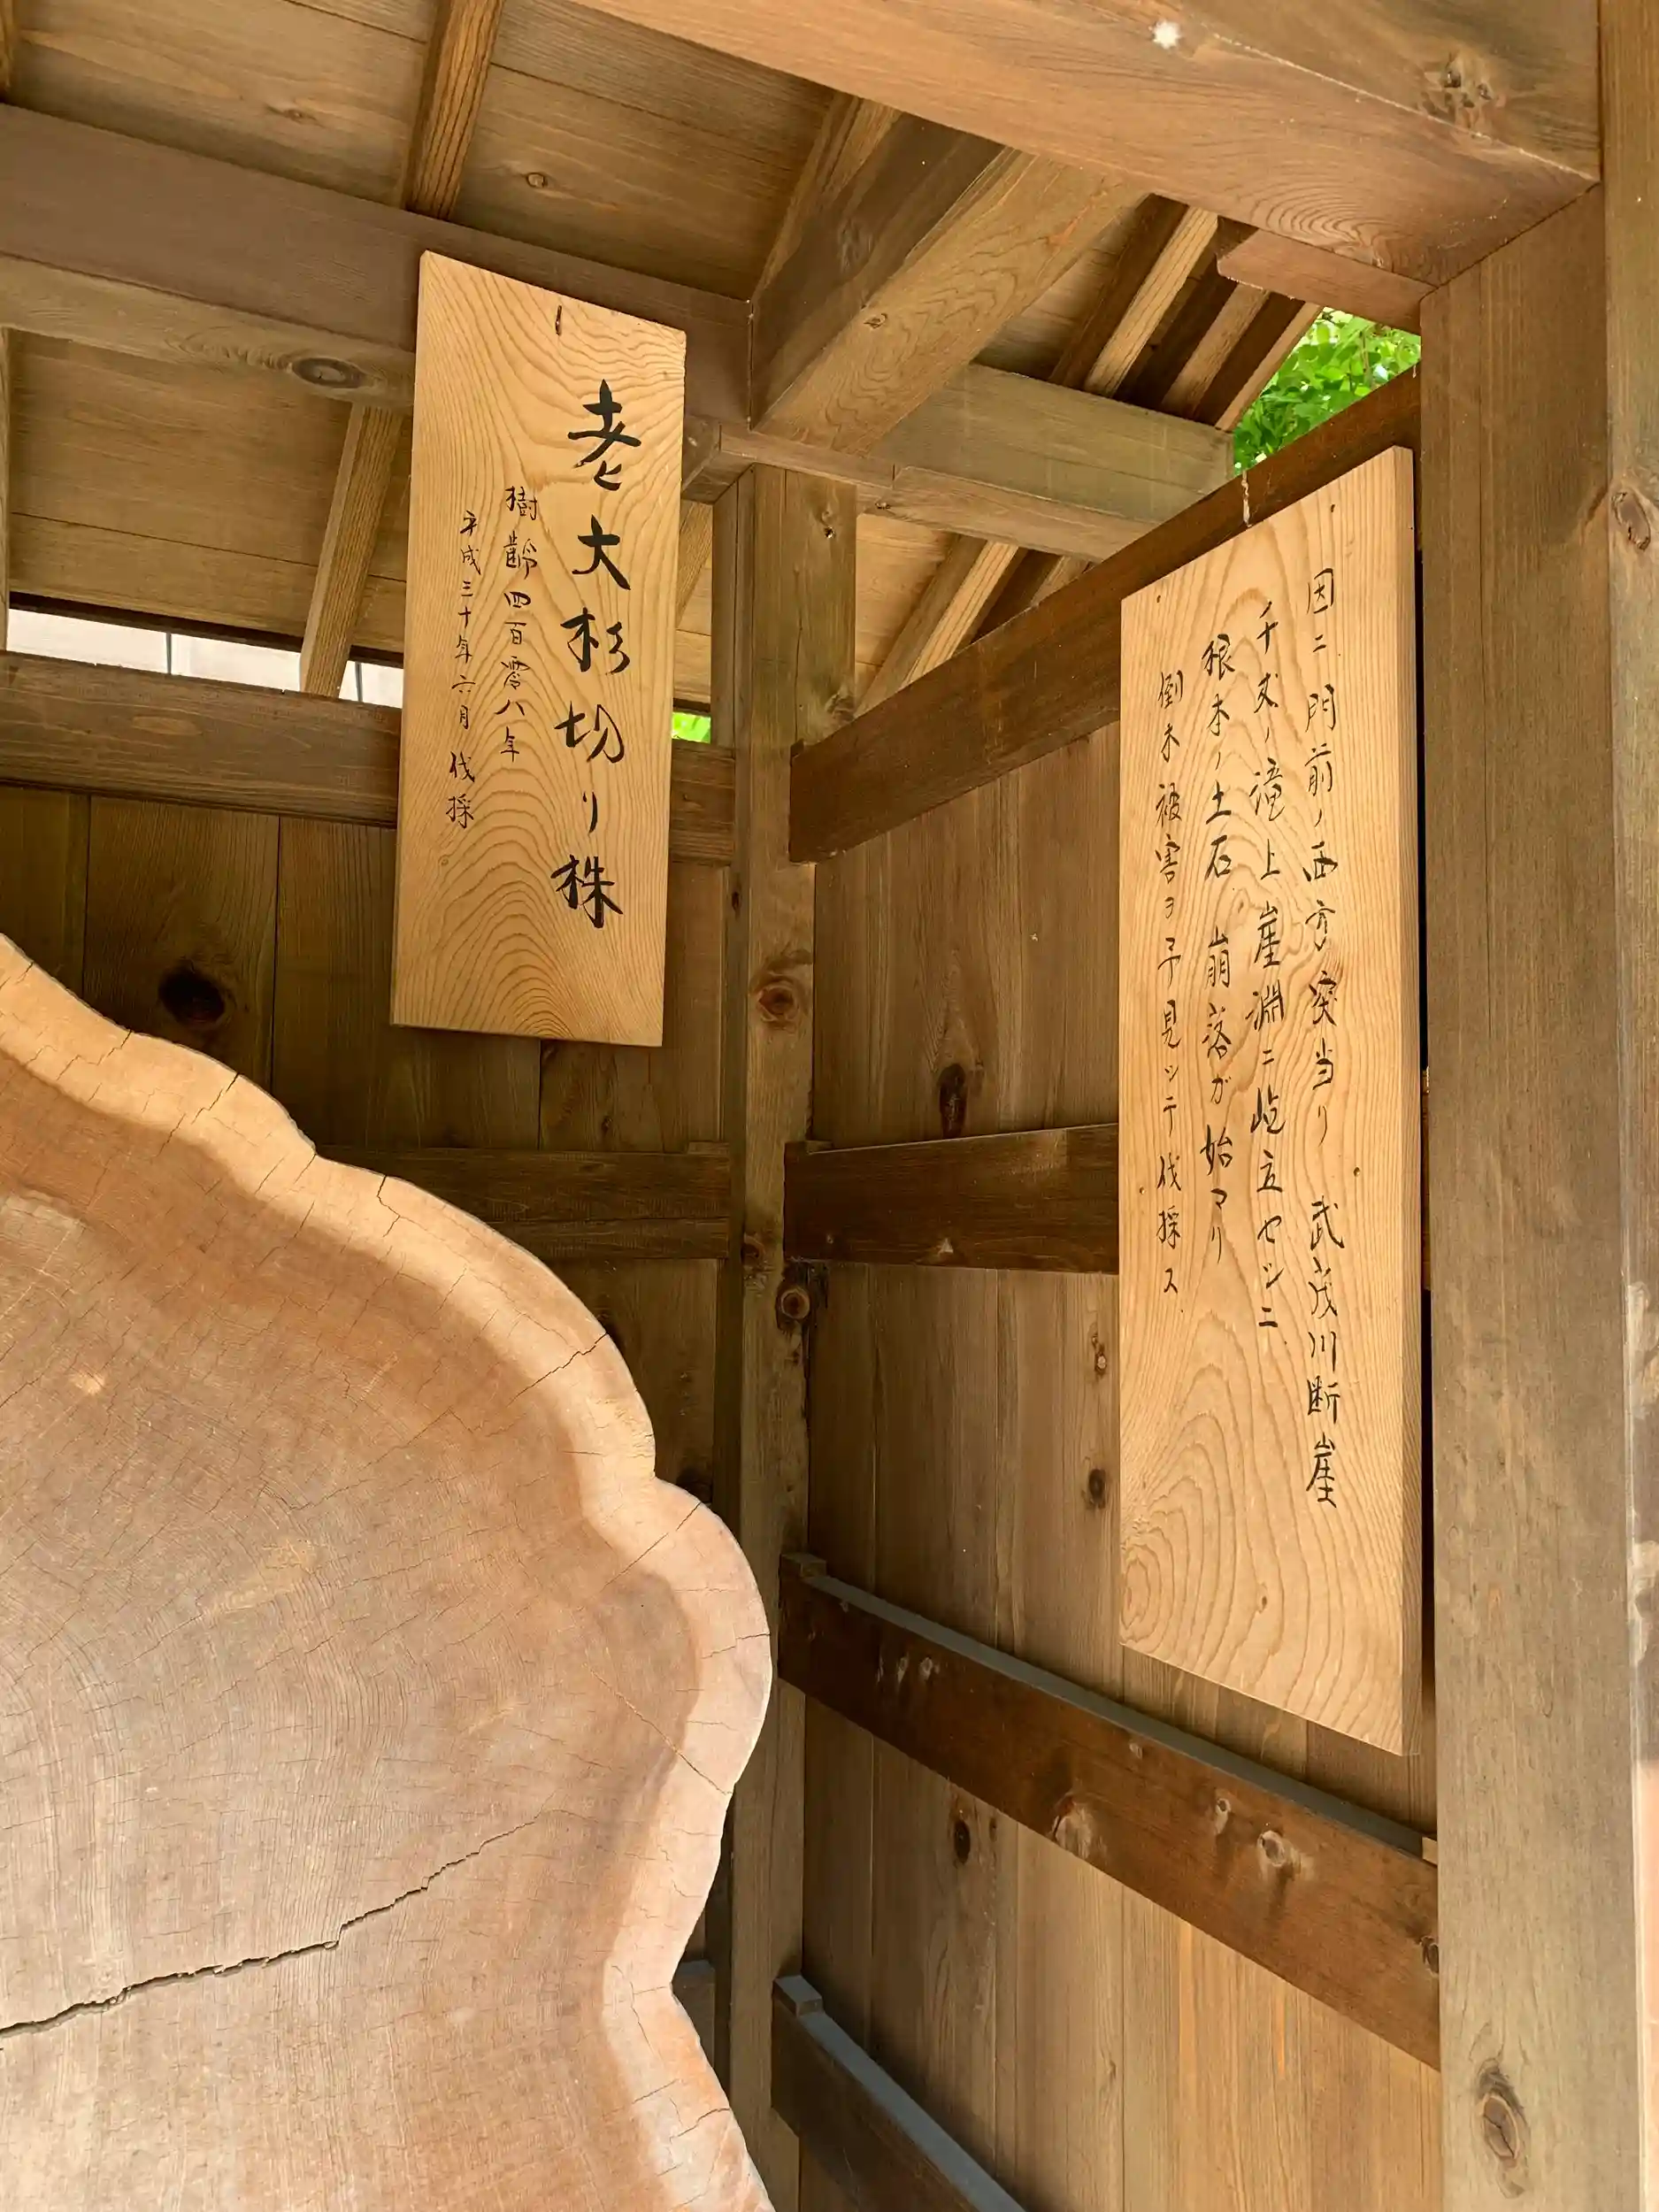 老大杉切り株
樹齢四百零八年
平成三十年六月伐採
因ニ門前ノ西方突当リ武茂川断崖
千丈ノ滝上崖淵ニ屹立セシニ
根本ノ土石崩落ガ始マリ
倒木被害ヲ予見シテ伐採ス